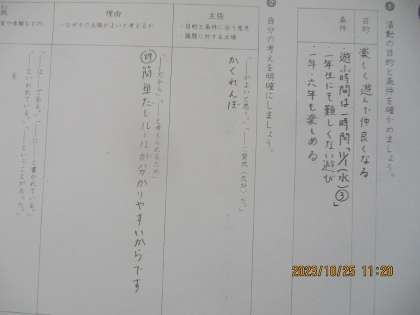 ❶ 活動の目的と条件を確かめましょう。
目的
楽しく遊んで仲良くなる
条件
・遊ぶ時間は一時間「11/1(水)③」
・一年生にも難しくない遊び
・一年・六年も楽しめる
❷ 自分の考えを明確にしましょう。
主張
・目的や条件に合う考え
・議題に対する立場
かくれんぼ
理由
・なぜその主張がよいと考えるか
簡単だしルールが分かりやすいからです
2023/10/25 11:20